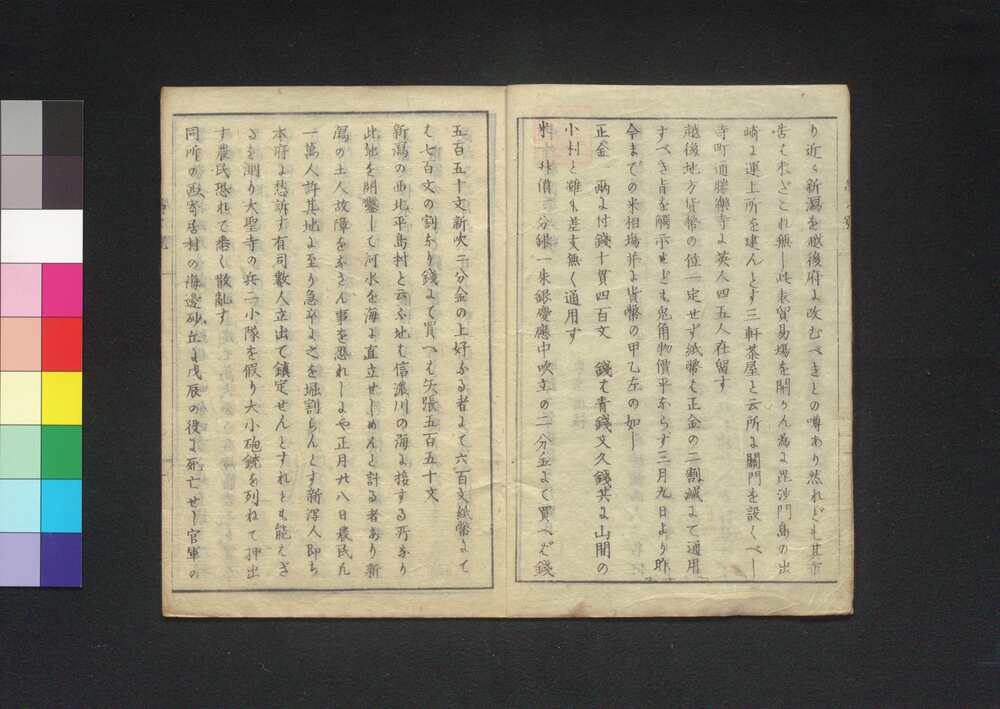 り近々新潟を越後府に改むべきとの噂あり然れども其布
告は未だこれ無し此表貿易場を開かん為に毘沙門島の出
崎に運上所を建んとす三軒茶屋と云所に關門を設くべし
寺町通勝樂寺に英人四五人在留す
越後地方貨幣の位一定せず紙幣は正金の二割減にて通用
すべき旨を觸示せども兎角物價平ならず三月九日より昨
今までの米相場并に貨幣の甲乙左の如し
正金一兩に付錢十貫四百文　錢は青錢文久錢共に山間の
小村と雖も差支無く通用す
米一升價二分銀一朱銀慶應中吹立の二分金にて買へば錢
五百五十文新吹二分金の上好なる者にて六百文紙幣にて
は七百文の割なり錢にて買へは矢張五百五十文
新潟の西北平島村と云ふ地は信濃川の海に接する所なり
此地を開鑿して河水を海に直立せしめんと計る者あり新
潟の土人故障をなさん事を恐れしにや正月廿八日農民凡
一萬人許其地に至り急卒に之を堀割らんとす新潟人即ち
本府に愁訴す有司數人立出て鎮定せんとすれとも能はざ
るを測り大聖寺の兵二小隊を假り大小砲銃を列ねて押出
す農民恐れて悉く散亂す
同所の西寄居村の海邊砂丘に戊辰の役に死亡せし官軍の